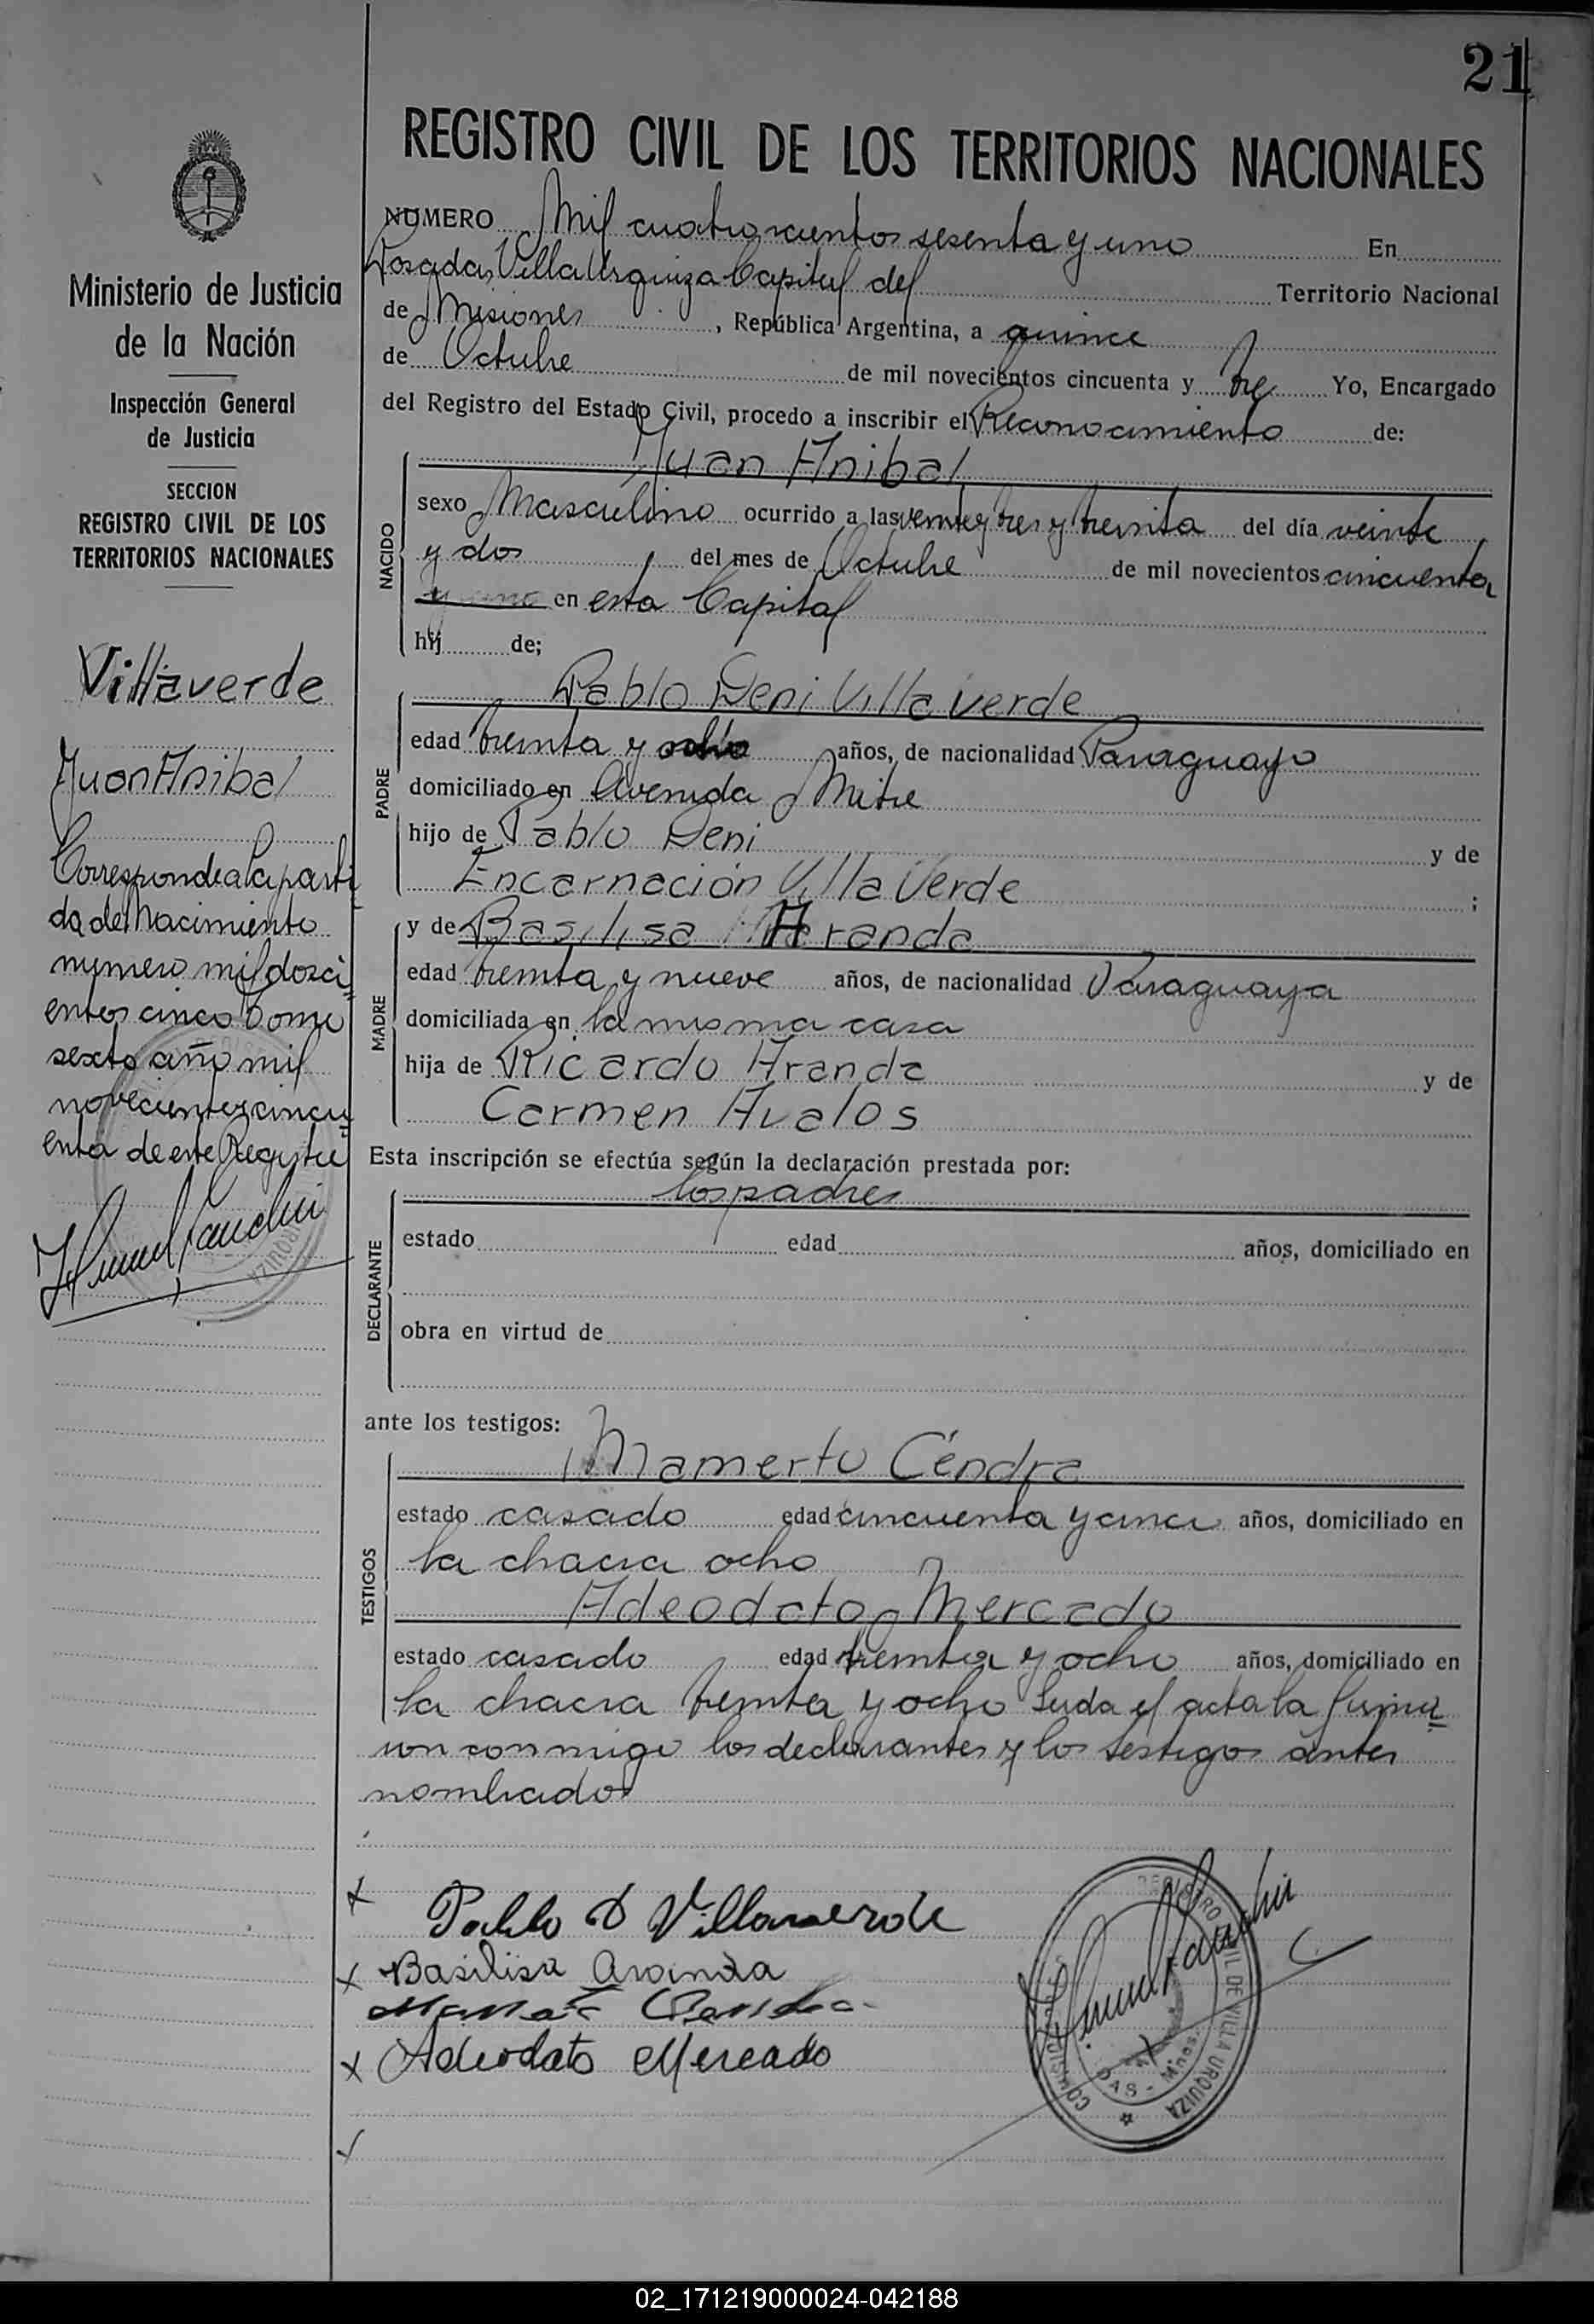 21
REGISTRO CIVIL DE LOS TERRITORIOS NACIONALES
Ministerio de Justicia
de la Nación
Inspección General
de Justicia
SECCION
REGISTRO CIVIL DE LOS
TERRITORIOS NACIONALES
Villaverde
Juan Anibal
Corresponde a la parti
da de Nacimiento
numero mil dosci
entos cinco Tomo
sexto año mil
novecientos cincu
enta de este Registro
NUMERO Mil cuatrocientos sesenta y uno En
Posadas, Villa Urquiza Capital del Territorio Nacional
de Misiones, República Argentina, a quince
de Octubre de mil novecientos cincuenta y tre Yo, Encargado
del Registro del Estado Civil, procedo a inscribir el Reconocimiento de:
NACIDO
Juan Anibal
sexo Masculino ocurrido a las veinte y tres y treinta del día veinte
y dos del mes de Octubre de mil novecientos cincuenta
en esta Capital
hij de;
PADRE
Pablo Deni Villaverde
edad treinta y ocho años, de nacionalidad Paraguayo
domiciliado en Avenida Mitre
hijo de Pablo Deni y de
Encarnación Villaverde ;
MADRE
y de Basilisa Aranda
edad treinta y nueve años, de nacionalidad Paraguaya
domiciliada en la misma casa
hija de Ricardo Aranda y de
Carmen Avalos
Esta inscripción se efectúa según la declaración prestada por:
DECLARANTE
los padres
estado edad años, domiciliado en
obra en virtud de
ante los testigos:
TESTIGOS
Mamerto Céndra
estado casado edad cincuenta y cinco años, domiciliado en
la chacra ocho
Adeodato Mercado
estado casado edad treinta y ocho años, domiciliado en
la chacra treinta y ocho Leida el acta la firma
ron conmigo los declarantes y los testigos antes
nombrados
Pablo D Villaverde
Basilisa Aranda
Adeodato Mercado
REGISTRO CIVIL DE VILLA URQUIZA
02_171219000024-042188